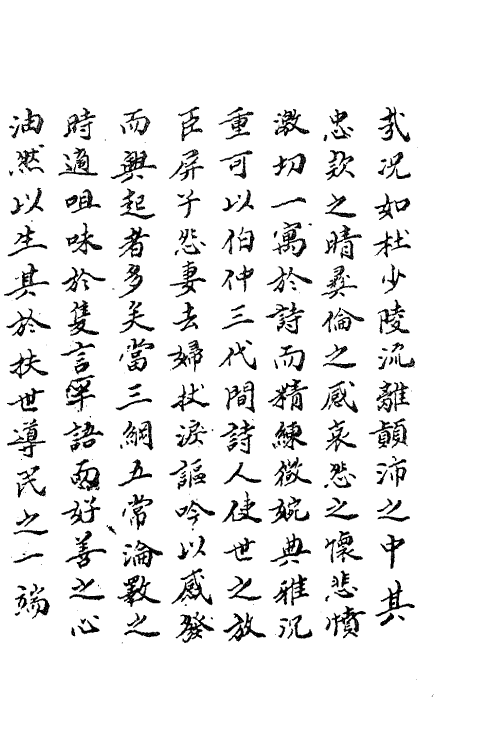 哉况如杜少陵流離顛沛之中其
忠欵之晴彛倫之感哀怨之懷悲憤
激切一寓於詩而精練微婉典雅沉
重可以伯仲三代間詩人使世之放
臣屏子怨妻去婦抆淚謳吟以感發
而興起者多矣當三綱五常淪斁之
時適咀味於隻言單語而好善之心
油然以生其於扶世導民之一端